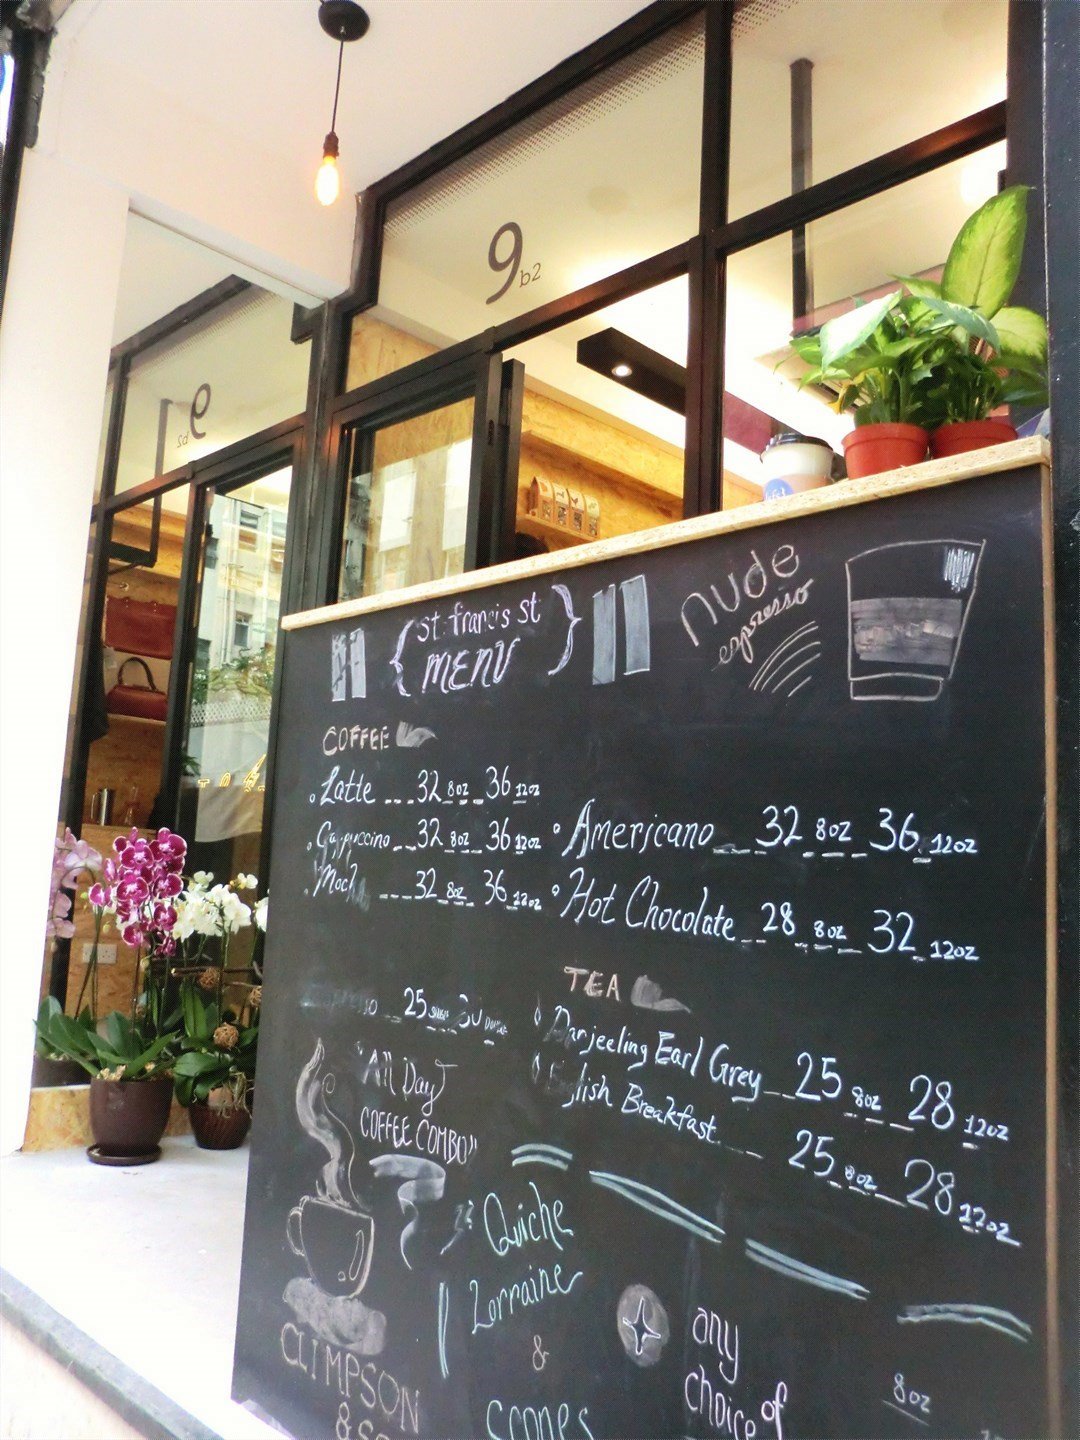 9 b2
{ st. francis st }
MENU
nude
espresso
COFFEE
Latte 32 8oz 36 12oz
Cappuccino 32 8oz 36 12oz
32 8oz 36 12oz
Americano 32 8oz 36 12oz
Hot Chocolate 28 8oz 32 12oz
25
TEA
Darjeeling Earl Grey 25 8oz 28 12oz
Breakfast 25 8oz 28 12oz
"All Day
COFFEE COMBO"
Quiche
Lorraine
&
scones
any
choice of
8oz
CLIMPSON
&